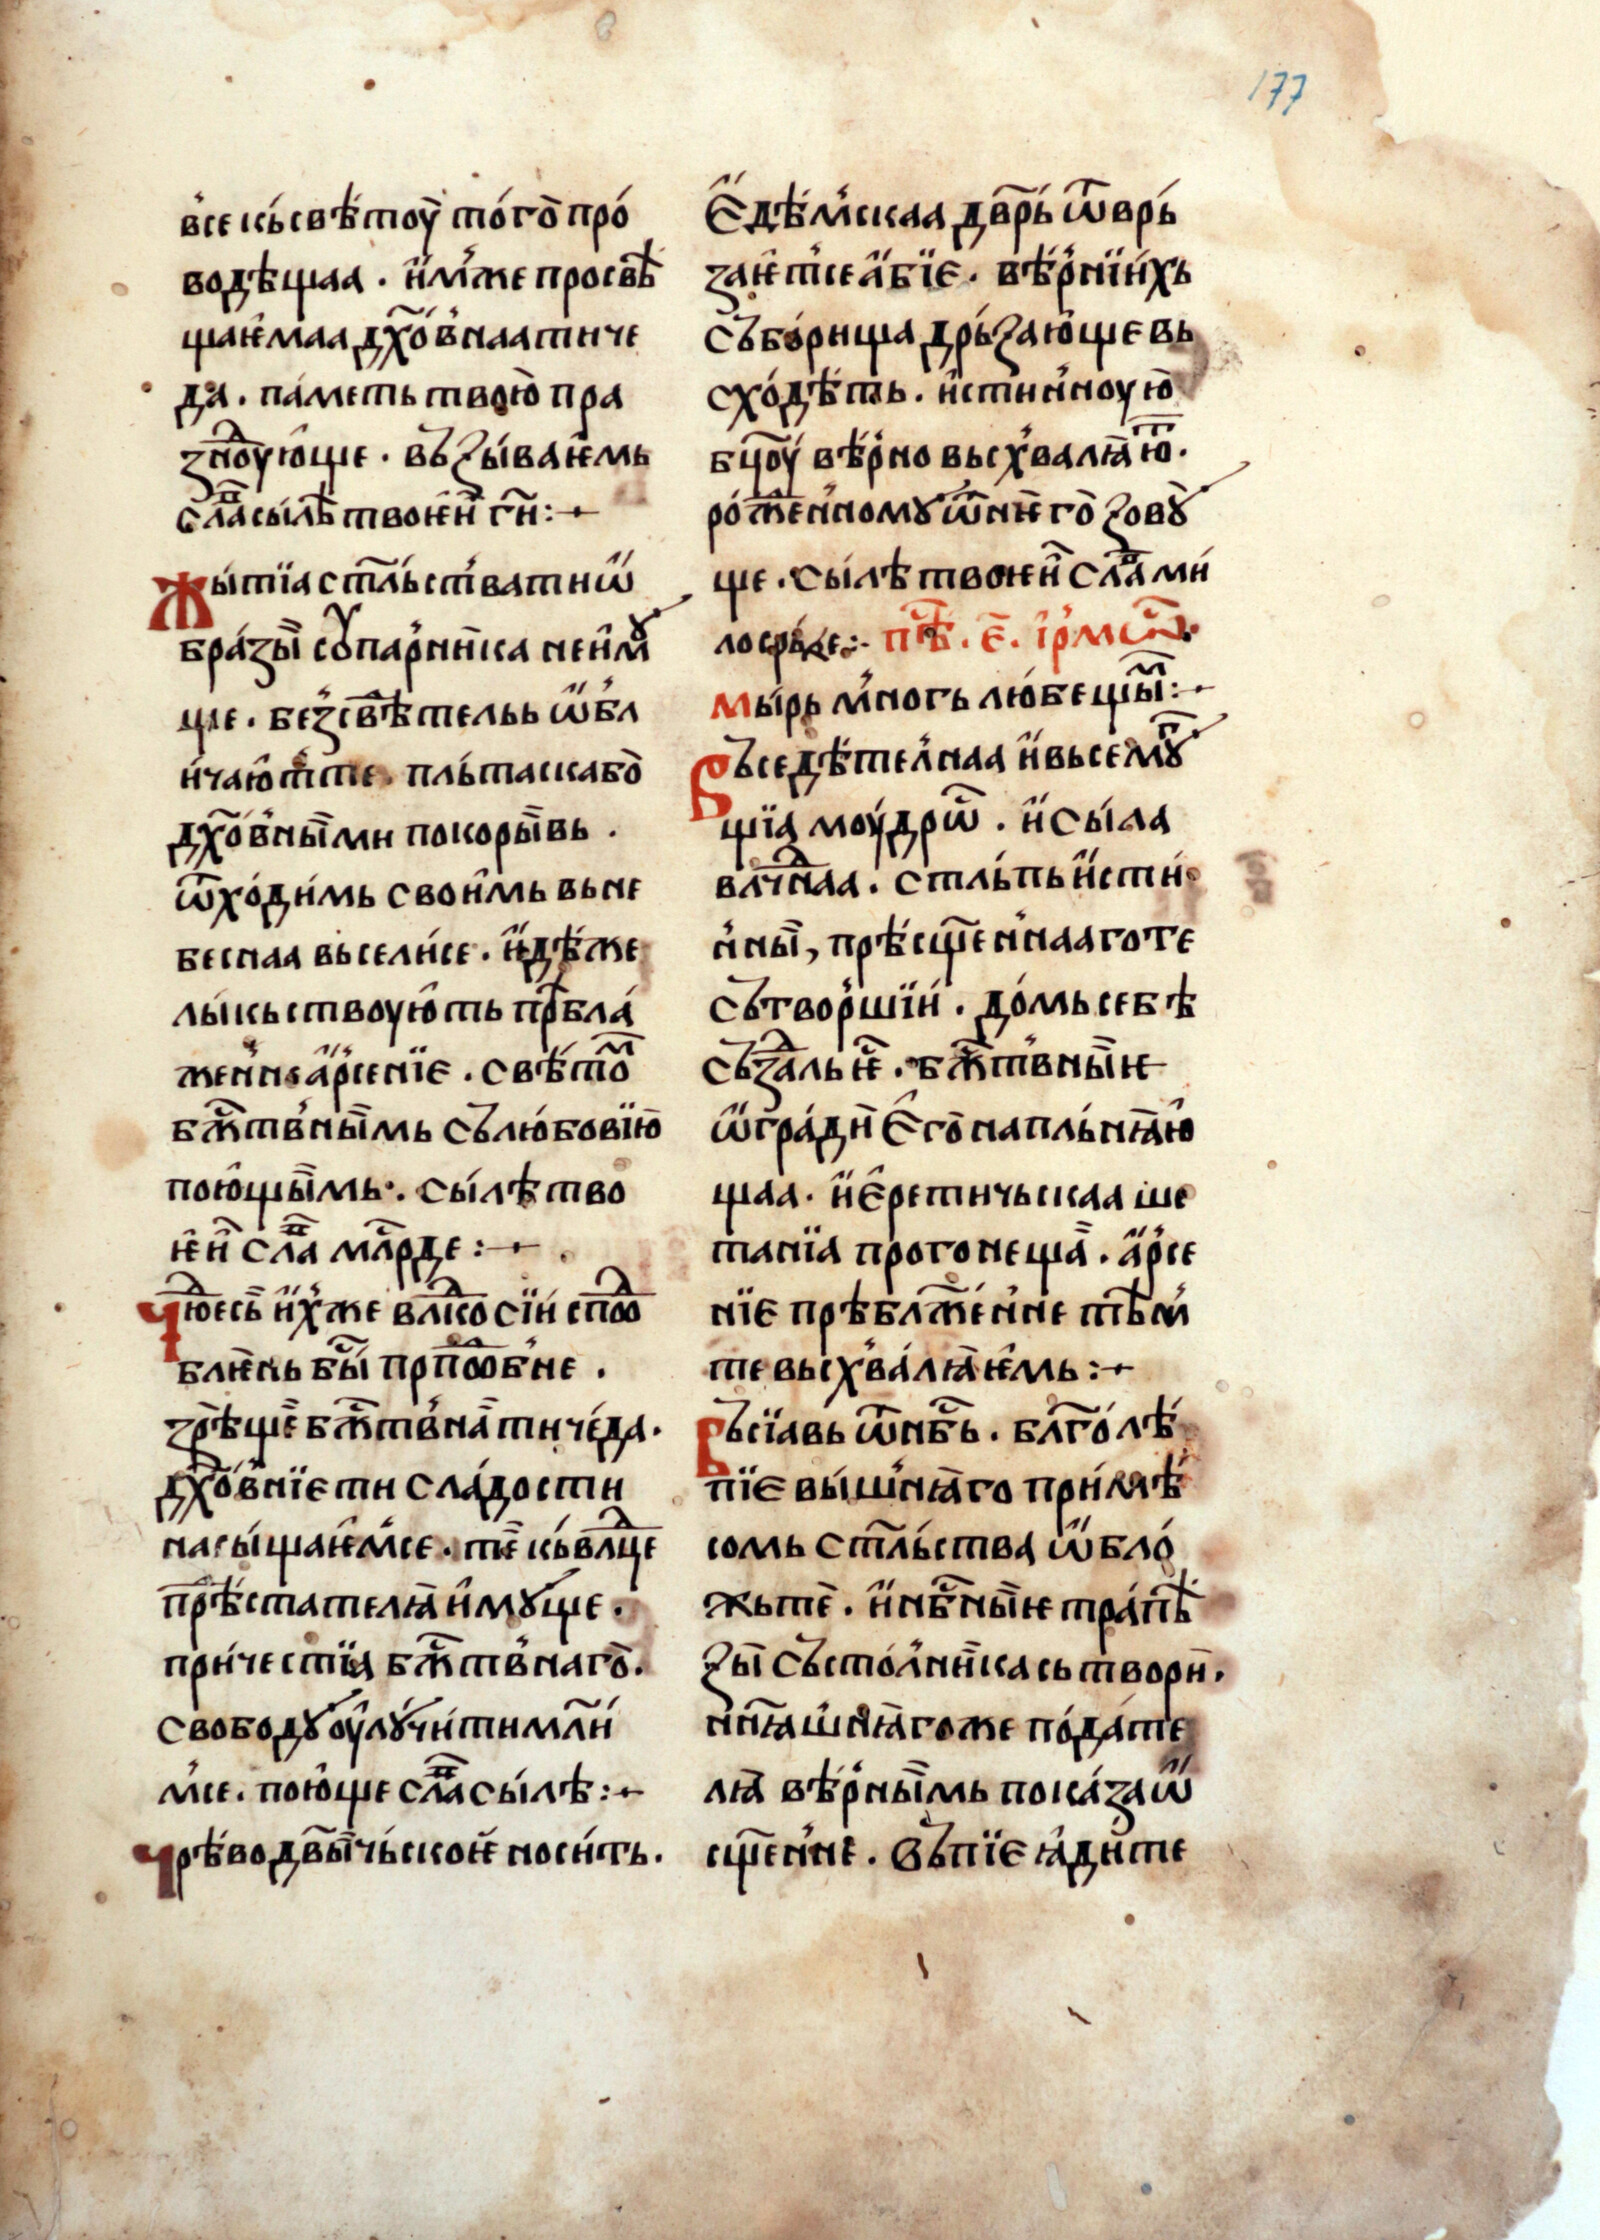 177
в҆се кь́ свѣ́тоу҆ то́го̀ про́
водѣщаа · и҆́м҆же просвѣ
щаѥ҆маа дх҃о́в҆наа ти че
да · па́меть твою̀ пра
зно́ую҆ще · въꙁы́ваѥ҆мь
сла сы́лѣ твоѥ҆и҆̀ ги҃ :·
Жы́тїа ст҃ль́ст҆ва ти ѡ҆́
бра́зы̀ соупар҆ни́ка не и҆мꙋ
ще · без҆свѣ́тельь ѡ҆́б҆л
и́чаю҆т те · пль́таскабо̀
дх҃о́в҆ны́ми покоры́вь ·
ѿхо́ди́мь свои҆́мь вь не
беснаа вьсели́се · и҆дѣ́же
лы́кьствоую҆ть прѣбла́
жен҆не а҆р҆сенїе · свѣ́тѡ
бж҃ств҆ны́мь съ лю́бовїю҆
пою҆щы́мь · сы́лѣ тво
ѥ҆и҆̀ сла мл҃рде :·
Чю҆десь и҆́х҆же вл҃ко сїи́ спⷣо
блѥ҆нь бы̀ прпⷣоб҆не ·
зрѣщѐ бж҃ств҆на̀ ти че́да ·
дх҃о́в҆нїе ти сла́дости
насы́щаѥ҆м҆се · тѐ кь́ влⷣце
прѣ́стателꙗ̀ и҆мꙋще ·
при́честїа бж҃ств҆наго̀ ·
свободꙋ оу҆лꙋчи́ти мл҃и́
м҆се · пою҆ще сла сы́лѣ :·
Чрѣ́во дв҃ы́чьскоѥ носи́ть ·
Е҆́дѣ́м҆скаа дв҃рь́ ѿврь́
заѥ҆т҆се а҆́бїе · вѣ́р҆нїи́хъ
съ бо́рища дрь́ꙁаю҆ще вь
схо́дѣть · и҆стин҆ноую҆
бц҃оу́ вѣ́р҆но вьсх҆валꙗ̀ю ·
ро́жен҆номꙋ ѿ нѥ҆го̀ ꙁовꙋ
ще · сы́лѣ твоѥ҆и҆̀ сла ми́
лосрь́де :· пѣ · е҃ · і҆р҆мѡс ·
мы́рь м҆ногь лю́бещы̀ :·
Въседѣ́тел҆наа и҆́ вьсемꙋ
щїа моу́дрѡ · и҆́ сы́ла
влч҃наа · стль́пь и҆сти́
н҆ны̀, прѣ́сщ҃ен҆наа го те
сътвор҆шїи́ · до́мь себѣ
създаль ѥ҆ · бж҃ств҆ны́ѥ
ѡ҆гра́ды̀ е҆го̀ напль́нꙗ́ю҆
щаа · и҆́ е҆ретичьскаа ше
танїа прогонеща̀ · а҆р҆се
нїе прѣблаже́н҆не тѣ́м҆
те вьсх҆ва́лꙗѥ҆мь :·
Въсїавь ѿ нбс҃ь · бл҃го́лѣ́
пїе вы́ш҆нꙗго при́млѣ́
сомь ст҃ль́ства ѡ҆́бло́
жьтѐ · и҆́ нбс҃ны́ѥ тра́пѣ
ꙁы̀ съ́сто́л҆ни́ка сь твори̇ ·
нн҃ꙗш҆нꙗго же по́да́те
лꙗ вѣ́р҆ны́мь пока́за ѡ҆́
сщ҃ен҆не · въпїе ꙗ҆ди́те